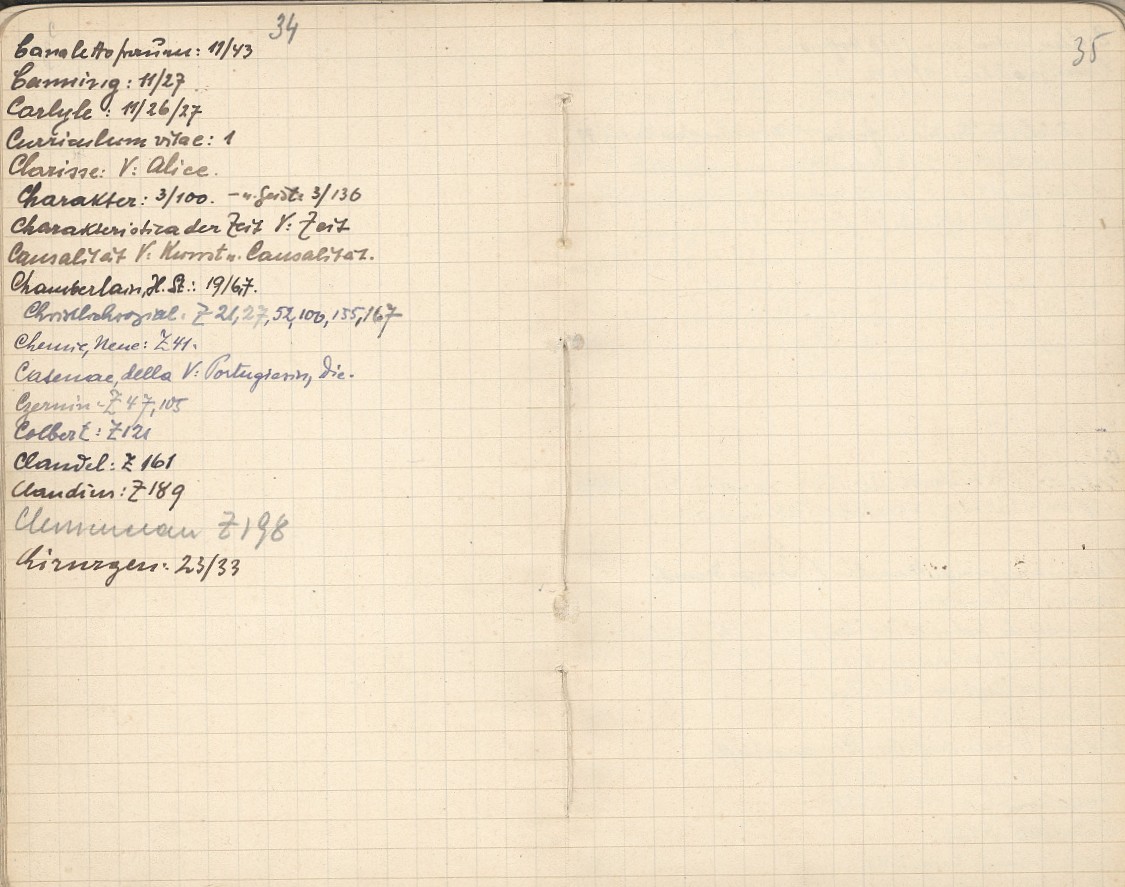 34
Canaletto : 11/43
Canning : 11/27
Carlyle : 11/26/27
Curriculum vitae: 1
Clarisse: V: Alice.
Charakter: 3/100. – u. Geist: 3/136
Charakteristica der Zeit V: Zeit
Causalität V: Kunst u. Causalität.
Chamberlain, H. St.: 19/67.
Christlichsozial: Z 21, 27, 52, 100, 155, 167
Chemie, Neue: Z 41.
Catenae, della V: Portugiesin, die.
Czernin: Z 47, 105
Colbert: Z 121
Claudel: Z 161
Claudius: Z 189
Clemenceau Z 198
Chirurgen: 23/33
35